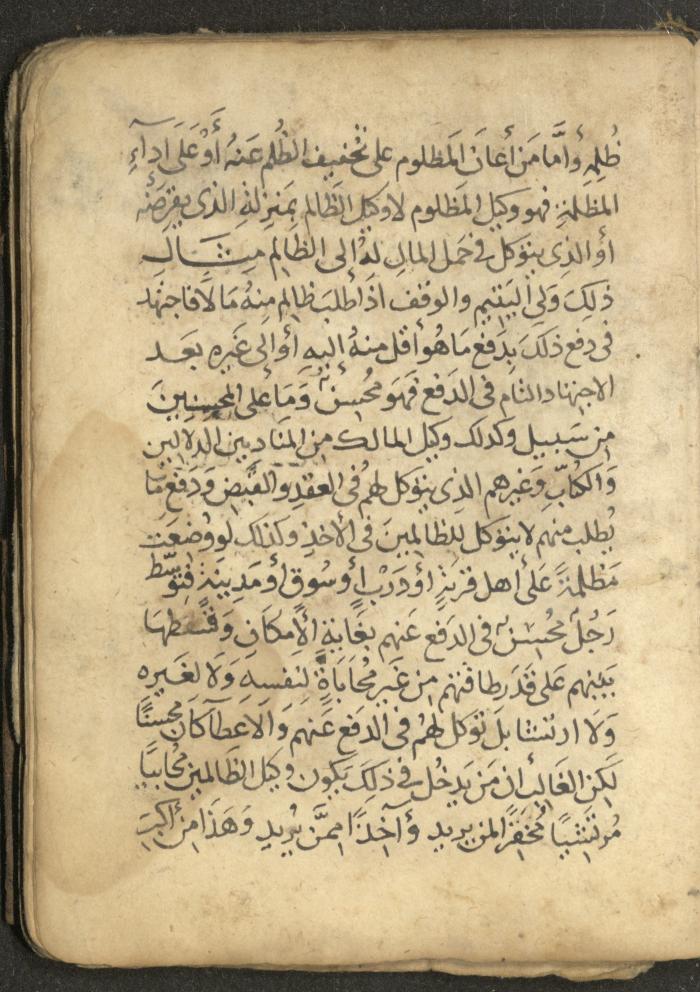 ظُلمِهِ وأمَّا مَن أعَانَ المَظلوم على تخفيف الظُلم عَنهُ أوْ عَلَى ادآءِ
المظلمةِ فهو وكيل المَظلوم لا وكيل الظَالم بمَنزِلَةِ الذى يقرضُه
أو الذِى يتوَكل فى حَمل المالِ لهُ الى الظالِم مِثَالُ
ذلِكَ وَلىّ اليَتيم والوقف اذَا طلبَ ظالِم مِنهُ مَالًا فاجتهَد
فى دفع ذلكَ بِدَفع مَا هُو أقل منهُ إليهِ أو الى غَيره بَعد
الاجتهاد التام فى الدَفع فَهوَ مُحسِنٌ وَمَا عَلى المحسِنِينَ
مِن سَبيل وكذلك وكيل المالك مِن المنَادِيين الدلالين
وَالكُتابِّ وَغيرهم الذِى يتوَكل لهم فى العَقدِ والقبضِ وَدَفع مَا
يُطلب منهم لا يتوَكل للظالمِينَ فى الأخذِ وكذلك لو وُضعَت
مَظلمةً عَلى أهل قريَةٍ أو دَرْبٍ أو سُوقٍ أو مَدِينَةٍ فتوَسَّط
رَجُلٌ مُحسِنٌ فى الدَفع عَنهم بغَايَةِ الأمكَانِ وَقسَّطهَا
بَينهم عَلى قَدَر طاقتهم مِن غَير مُحَابَاةٍ لِنفسِهِ وَلا لغَيره
وَلا ارتشا بَل تَوكل لهُم فى الدَفع عَنهم وَالاعطآ كانَ محسِنًا
لَكن الغَالِب ان مَن يَدخُل فى ذلِكَ يَكون وكيل الظَالمِين مُحَابيًا
مُرتَشِيًا مُخفِرًا لمن يريد وَآخِذًا مِمنَّ يُريد وَهَذَا مِن أكبَرِ